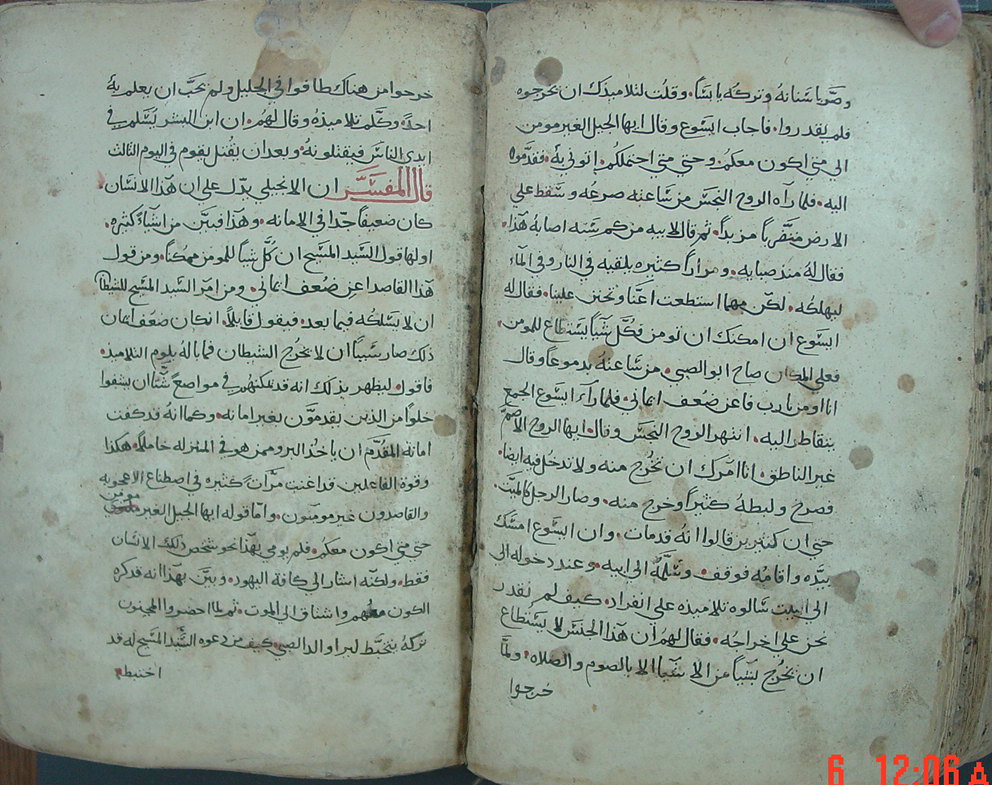 وصر باسنانه وتركه يابسًا. وقلت لتلاميذك ان يخرجوه
فلم يقدروا. فاجاب ايسوع وقال ايها الجيل الغير مومن
الى متى اكون معكم. وحتى متى احتملكم. اتوني به. فقدموه
اليه. فلما رآه الروح النجس من ساعته صرعه وسقط على
الارض مزبدًا. ثم قال لابيه من كم سنه اصابه هذا.
فقال له منذ صبايه. ومرارًا كثيره يلقيه في النار وفي الماء
ليهلكه. لكن مهما استطعت اعنا وتحنن علينا. فقال له
ايسوع ان امكنك ان تومن فكل شيًا يستطاع للمومن.
فعلى المكان صاح ابو الصبي. من ساعته بدموعًا وقال
انا اومن يا رب فاعن ضعف ايماني. فلما رآء ايسوع الجمع
يتقاطر اليه. انتهر الروح النجس وقال. ايها الروح الاصم
غير الناطق. انا امرك ان تخرج منه ولا تدخل فيه ايضا.
فصرخ ولبطه كثيرًا وخرج منه. وصار الرجل كالميت.
حتى ان كثيرين قالوا انه قد مات. وان ايسوع امسك
بيده واقامه فوقف. وسلمه الى ابيه. وعند دخوله الى
الى البيت سالوه تلاميذه على انفراد. كيف لم نقدر
نحن على اخراجه. فقال لهم ان هذا الجنس لا يستطاع
ان يخرج بشيًا من الاشيا الا بالصوم والصلاه. ولما
خرجوا
خرجوا من هناك طافوا في الجليل ولم يحب ان يعلم به
احد. وكلم تلاميذه وقال لهم. ان ابن البشر يُسلم في
ايدى الناس فيقتلونه. وبعد ان يقتل يقوم في اليوم الثالث
قال المفسر ان الانجيلي يدل على ان هذا الانسان
كان ضعيفًا جدًا في الامانه. وهذا فبين من اشياءً كثيره.
اولها قول السيد المسيح ان كل شيًا للمومن ممكنًا. ومن قول
هذا القاصد اعن ضعف ايماني. ومن امر السيد المسيح للشيطان
ان لا يسلكه فيما بعد. فيقول قايلًا. ان كان ضعف ايمان
ذلك صار سببًا ان لا يخرج الشيطان فما باله يلوم التلاميذ.
فاقول. ليظهر بذلك انه قد يمكنهم في مواضع شتا ان يشفوا
خلوًا من الذين يقدمون بغير امانه. وكما انه قد كفت
امانة المقدم ان ياخذ البرو ممن هو في المنزله خاملًا. هكذا
وقوة الفاعلين قد اغنت مرات كثيره في اصطناع الاعجوبه
والقاصدون غير مومنون. واما قوله ايها الجيل الغير مومن
حتى متى اكون معكم. فلم يومي بهذا نحو شخص ذلك الانسان
فقط. ولكنه اشار الى كافة اليهود. وبين بهذا انه قد كره
الكون معهم واشتاق الى الموت. ثم لما احضروا المجنون
تركه يتخبط ليرا والد الصبي. كيف من دعوه السيد المسيح له قد
اختبط.
6 12:06 A